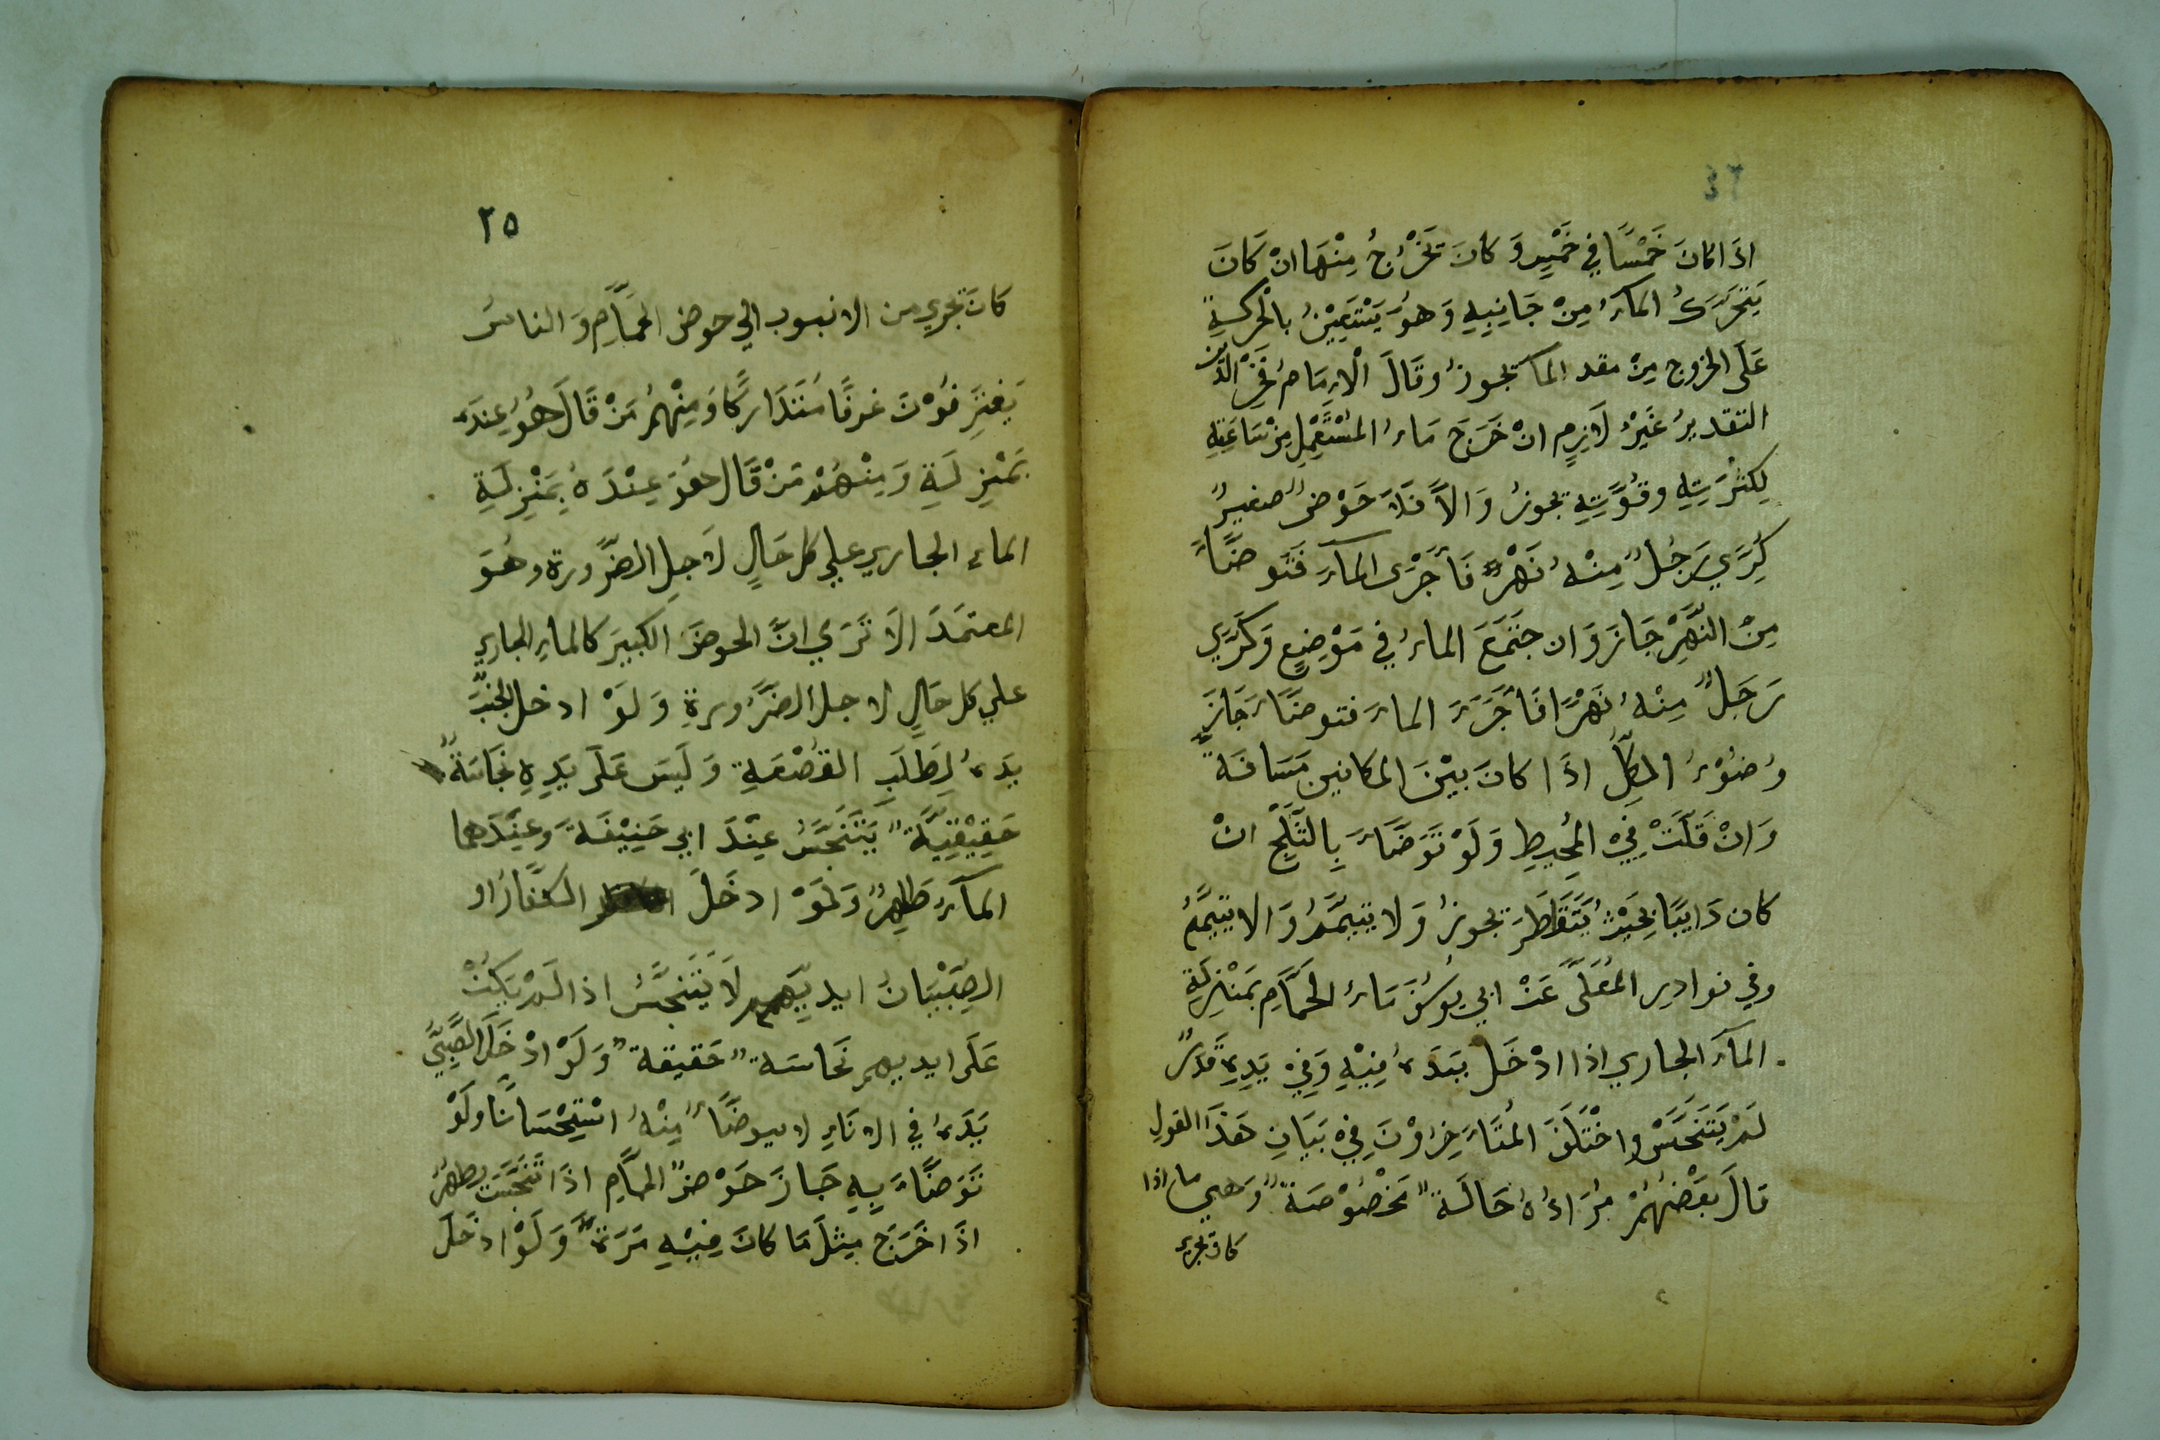 ٢٤
اذَا كَانَ خَمْسًا فِي خَمْسٍ وَ كَانَ يَخْرُجُ مِنْهَا انْ كَانَ
يَتَحَرَّكُ المَآءُ مِنْ جَانِبِهِ وَهُوَ يَسْتَعِيْنُ بالْحَركةِ
عَلَى الخروج مِنْ مقد المآ يجوزُ وقَالَ الْاِمَامُ فَخْرُ الدّين
التقديرُ غَيْرُ لَازِمٍ انْ خَرَجَ مَاءُ المُسْتَعْمِلِ مِنْ سَاعَتِهِ
لِكَثْرَتِهِ وقُوَّتِهِ يجوزُ وَالاَّ فَلاَ حَوْضٌ صغيرٌ
كَرَّي رَجُلٌ مِنْهُ نَهْرًا فَأَجْرَى المَآءَ فَتَوضَّأَ
مِنْ النَّهْرِ جَازَ وَان جتَمَعَ الماءُ فِي مَوْضِعٍ وَكَرَّي
رَجَلٌ مِنْهُ نَهْرًا فَأَجْرَءَ الماءَ فتوضَّاءَ جَازَ
وُضُوْءُ الكِلِّ اذَا كَانَ بَيْنَ المكانين مَسَافَةٌ
وَانْ قَلَّتْ فِيْ المُحِيطِ وَلَوْ تَوَضَّاءَ بِالثَّلْجِ انْ
كان دَايبًا بِحَيْثُ يَتَقَاطَرَ يجوزُ وَلا يتيمَّمُ وَالا يتيَمَّمُ
وفي نوادِرِ المُعَلَّى عَنْ ابي يُوسُفَ مَاءُ الحَمَّامِ بمَنْزِلَةِ
المآءَ الجاري اذا ادْخَلَ يَدَهُ فِيْهِ وَفِيْ يَدِهِ قَذَرٌ
لَمْ يَتَنَجَّسْ واخْتَلَفَ المُتَاءَخِرُوْنَ فِيْ بَيَانِ هَذَا القولِ
قَالَ بَعْضُهُمْ مُرَادُهُ حَالَةٌ مَخْصُوْصَةٌ وَهي ما اذا
كان تجري
٢٥
كَانَ تجري من الانبوب الي حوض الحَمَّامِ وَ الناسُ
يَغتَرِفُوْنَ غرفًا مُتَدَارِكًا وَمِنْهُمْ مَنْ قَالَ هُوَ عِندَهُ
بَمَنْزِلَةِ وَمِنْهُمْ مَنْ قَال هُوَ عِنْدَهُ بِمَنْزِلَةِ
الماءِ الجاري علي كل حَالٍ لاَجلِ الضَّرُورة وهُوَ
المعتمَدَ الاَ تَرَي انَّ الحوضَ الكبيرَ كالماءِ الجاري
علي كل حَالٍ لاجل الضَّرُورةِ وَلَوْ ادخل الجُنبُ
يدَهُ لِطَلَبِ القَصْعَةِ وَلَيسَ عَلَى يَدِهِ نَجَاسَةٌ
حَقِيْقِيَّةٌ يَتَنَجَّسُ عِنْدَ ابي حَنِيْفَةَ وعِنْدَهما
المآءُ طَاهِرٌ وَلَوْ ادخَلَ الكفَّارُ او
الصِّبْيَانُ ايديَهم لَا يَتَنَجَّسُ اذا لَمْ يَكُنْ
عَلَى ايديهم نَجَاسَةٌ حَقيقةٌ وَلَوْ ادْخَلَ الصَّبِيُّ
يَدَهُ فِي الانَاءِ لا يتوضَّأُ مِنْهُ اسْتِحْسَانًا ولَوْ
تَوَضَّاءَ بِهِ جَازَ حَوْضُ الحمَّامِ اذَا تَنَجَّسَتْ يطهرُ
اذَا خَرَجَ مِثلَ مَا كَانَ فِيْهِ مَرَةً وَلَوْ ادخَلَ